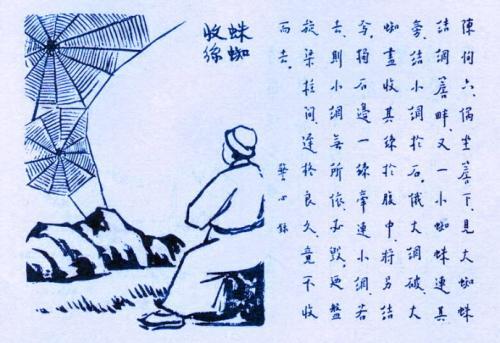 蛛蜘
收絲
陳伺六、偶坐簷下、見大蜘蛛
結網簷畔、又一小蜘蛛連其
旁、結小網於石、俄大網破、大
蜘盡收其絲於腹中、將另結
獨石邊一絲牽連小網、若
去、則小網無所依、必毀、迺盤
旋梁柱間、良久、竟不收
而去。
警心錄